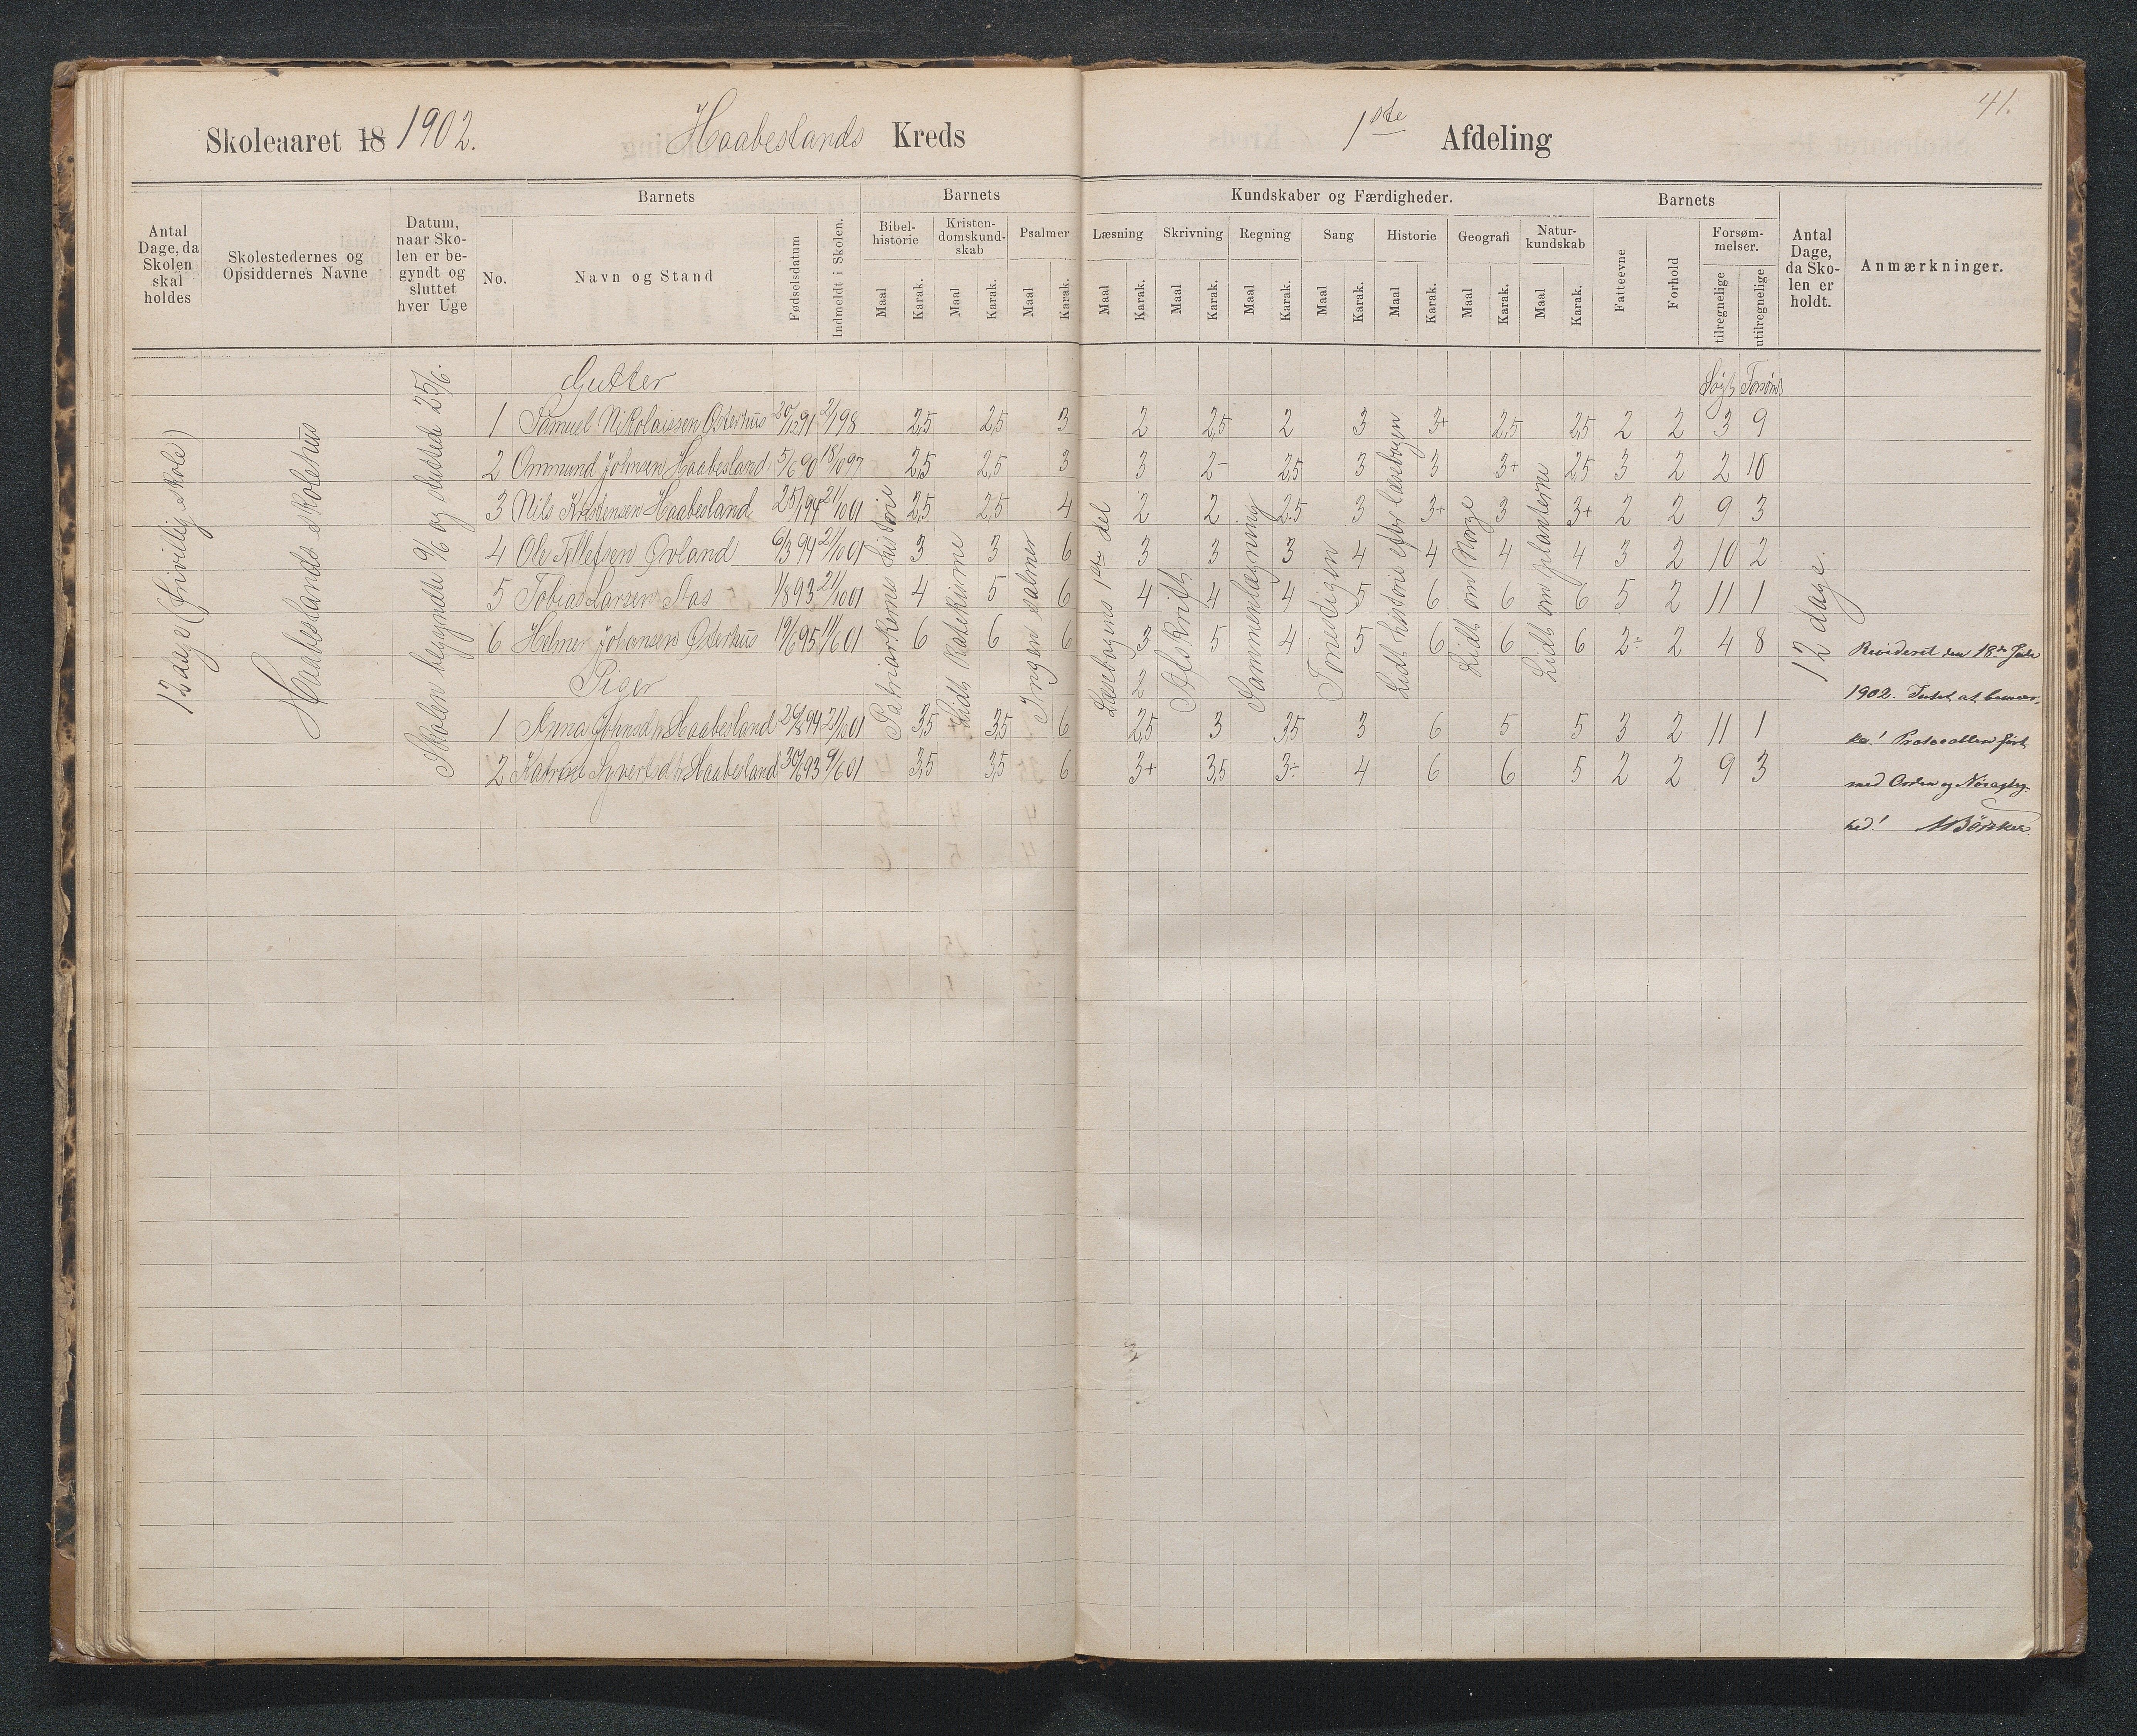 41.
Skoleaaret 18 1902. Haabeslands Kreds 1ste Afdeling
Antal Dage, da Skolen skal holdes
Skolestedernes og Opsiddernes Navne
Datum, naar Skolen er begyndt og sluttet hver Uge
Barnets
No. Navn og Stand Fødselsdatum Indmeldt i Skolen.
Barnets Kundskaber og Færdigheder.
Bibelhistorie Kristendomskundskab Psalmer Læsning Skrivning Regning Sang Historie Geografi Naturkundskab
Maal Karak. Maal Karak. Maal Karak. Maal Karak. Maal Karak. Maal Karak. Maal Karak. Maal Karak. Maal Karak. Maal Karak.
Barnets
Fatteevne Forhold Forsømmelser. tilregnelige utilregnelige
Antal Dage, da Skolen er holdt.
Anmærkninger.
12 dage (frivillig skole)
Haabeslands skolehus
Skolen begyndte 9/6 og sluttede 25/6.
Patriarkernes historie
Lidt Katekisme
Ingen salmer
Læsebogens 1ste del
Afskrift
Sammenlægning
Lidt historie efter læsebogen
Lidt om Norge
Lidt om planterne
12 dage.
Gutter Søgt Forsømt
1 Samuel Nikolaissen Osterhus 20/12 91 2/1 98 2,5 2,5 3 2 2,5 2 3 3+ 2,5 2,5 2 2 3 9
2 Ommund Johnsen Haabesland 5/6 90 18/10 97 2,5 2,5 3 3 2- 2,5 3 3 3+ 2,5 3 2 2 10
3 Nils Kristensen Haabesland 25/1 94 21/10 01 2,5 2,5 4 2 2 2.5 3 3+ 3 3+ 2 2 9 3
4 Ole Tellefsen Øvland 6/3 94 21/10 01 3 3 6 3 3 3 4 4 4 4 3 2 10 2
5 Tobias Larsen Aas 1/8 93 21/10 01 4 5 6 4 4 4 5 6 6 6 5 2 11 1
6 Helmer Johansen Osterhus 19/6 95 11/6 01 6 6 6 3 5 4 5 6 6 6 2÷ 2 4 8
Piger
1 Anna Johnsd/r Haabesland 21/10 01 3,5 3,5 6 2,5 3 3,5 3 6 5 5 3 2 11 1
2 Syvertsd/r Haabesland 30/6 93 9/6 01 3,5 3,5 6 3+ 3,5 3÷ 4 6 6 5 2 2 9 3
Revideret den 18de Juli
1902. Intet at bemær-
ke! Protocollen ført
med Orden og Nøiagtig-
hed!